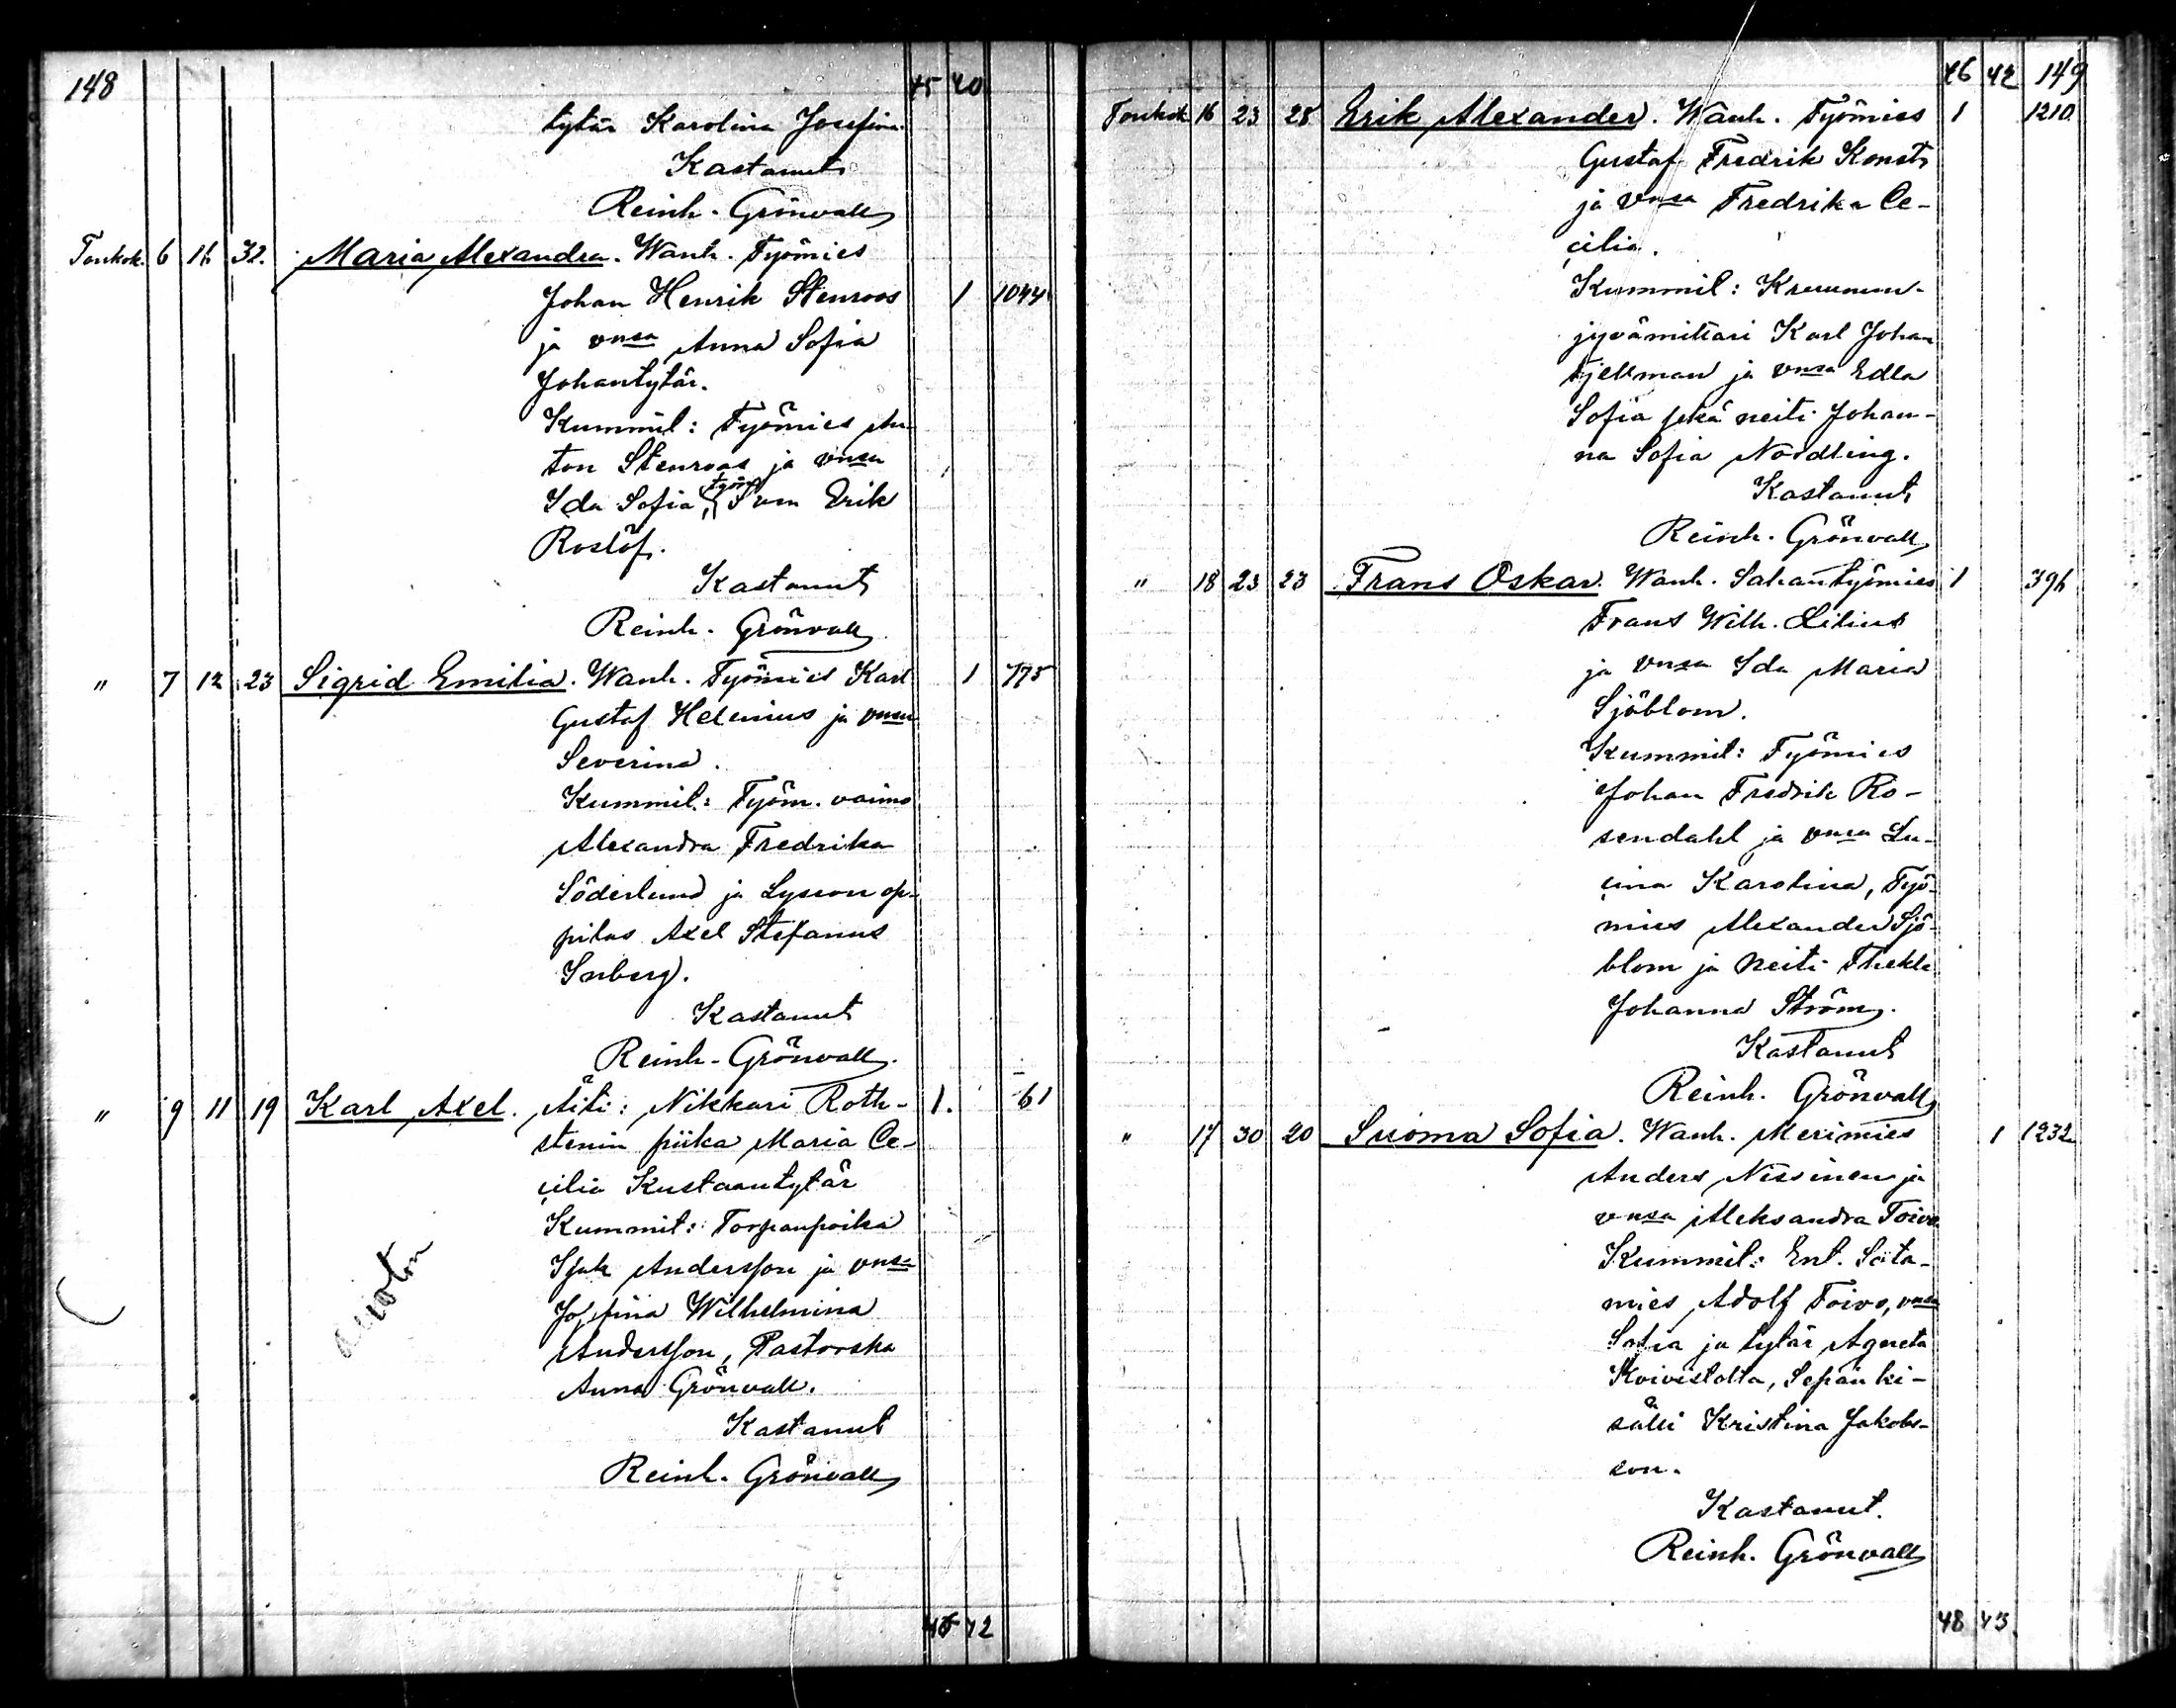 148
45 40
tytär Karolina Josefina.
Kastanut
Reinh. Grönvall
Toukok. 6 16 32. Maria Alexandra. Wanh. Työmies
Johan Henrik Stenroos 1 1044
ja vnsa Anna Sofia
Johantytär.
Kummit: Työmies An-
ton Stenroos ja vnsa
Ida Sofia, työm Sven Erik
Roslöf.
Kastanut
Reinh. Grönvall
" 7 12 23 Sigrid Emilia. Wanh. Työmies Karl 1 775
Gustaf Helenius ja vnsa
Severina.
Kummit: Työm. vaimo
Alexandra Fredrika
Söderlund ja Lyseon op-
pilas Axel Stefanus
Kastanut
Reinh. Grönvall.
" 9 11 19 Karl Axel. Äiti: Nikkari Roth- 1. 61
stenin piika Maria Ce-
cilia Kustaantytär
Kummit: Torpanpoika
Isak Andersson ja vnsa
Josefina Wilhelmina
Andersson, Pastorska
Anna Grönvall.
Kastanut
Reinh. Grönvall
avioton
46 42
46 42 149
Toukok 16 23 28 Erik Alexander. Wanh. Työmies 1 1210
Gustaf Fredrik Konst
ja vnsa Fredrika Ce-
cilia.
Kummit: Kruunun-
jyvämittari Karl Johan
Tjellman ja vnsa Edla
Sofia sekä neiti Johan-
na Sofia Nordling.
Kastanut
Reinh. Grönvall
" 18 23 23 Frans Oskar. Wanh. Sahantyömies 1 396
Frans Wilh. Lilius
ja vnsa Ida Maria
Sjöblom.
Kummit: Työmies
Johan Fredrik Ro-
sendahl ja vnsa Lu-
cina Karolina, Työ-
mies Alexander Sjö-
blom ja Neiti Thekla
Johanna Ström.
Kastanut
Reinh. Grönvall
" 17 30 20 Suoma Sofia. Wanh. Merimies 1 1232
Anders Nissinen ja
vnsa Aleksandra Toivo
Kummit: Ent. Sota-
mies Adolf Toivo, vnsa
Sofia ja tytär Agneta
Koivistolta, Sepän ki-
sälli Kristina Jakobs-
son.
Kastanut.
Reinh. Grönvall
48 43